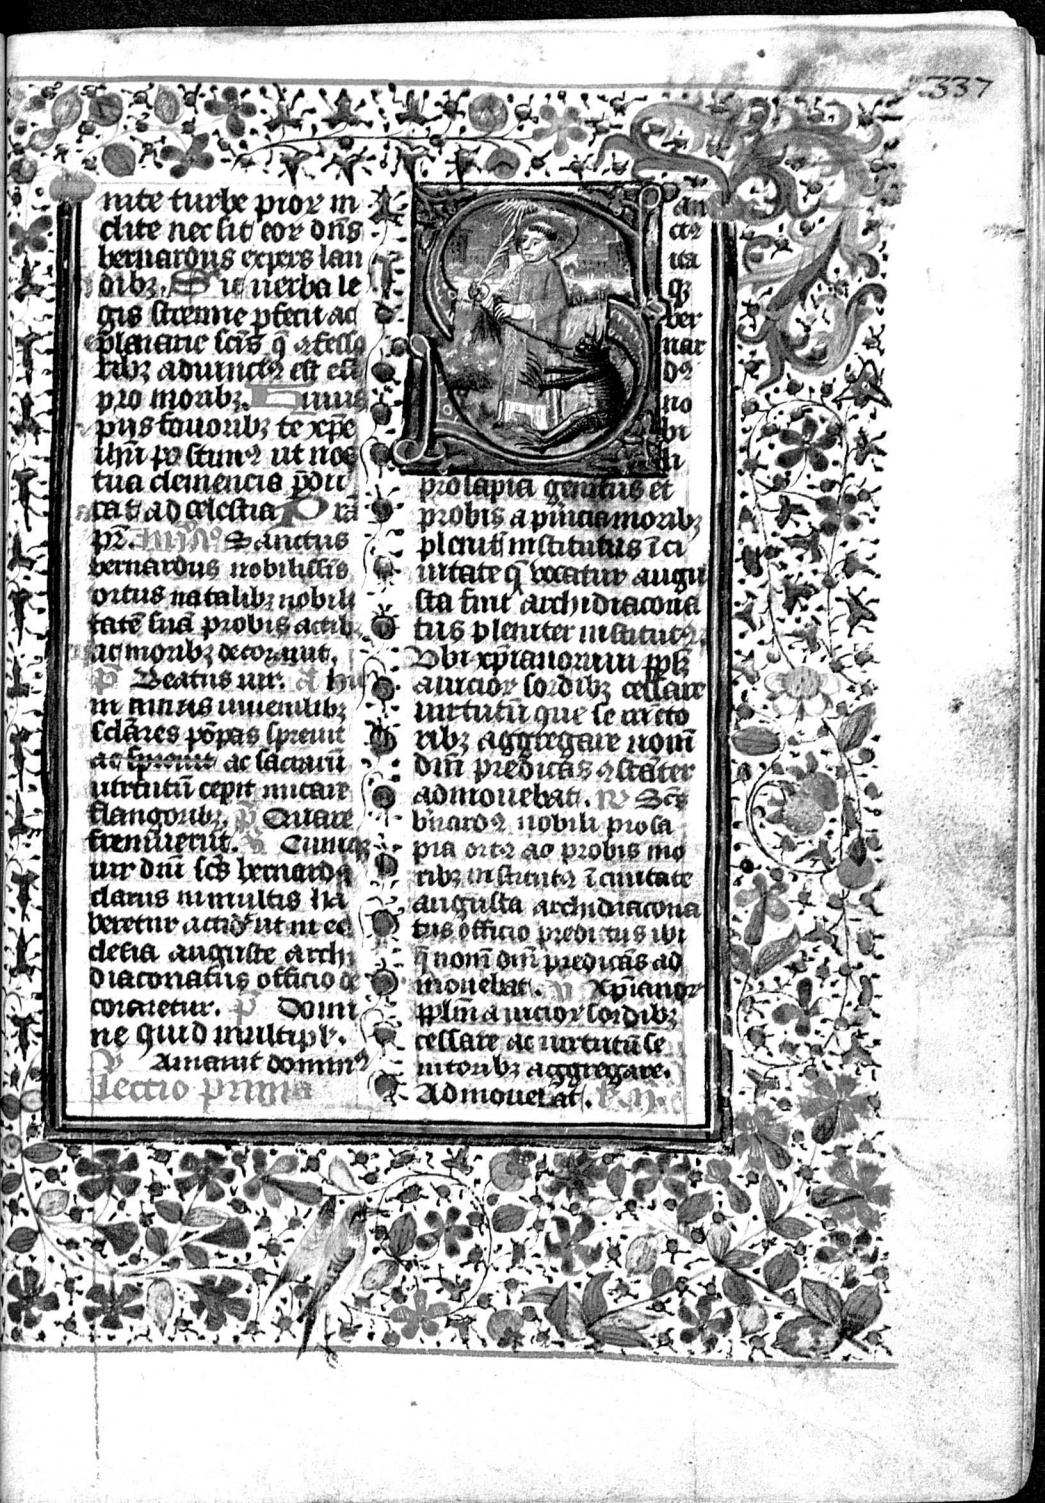 337
nite turbe pioꝝ in
clite nec sit eoꝝ dn̄s
bernardus expers lau
dibꝫ. Sic uerba le
gis strenue ꝑfecit ac
explanauit scūs
ribꝫ adiunctꝰ est
pro moribꝫ. Huius
pijs fauoribꝫ te xp̄e
ut nos
tua clemencia
ad celestia Prā
pr̄. Sanctus
bernardus nobilissis
ortus natalibꝫ nobili
tatē suā probis actibꝫ
ac moribꝫ decorauit.
p̄ Beatus uir. a Hic
in annis iuuenilibꝫ
sclāres pōpas spreuit
ac spreuit ac sacrarū
uirtutū cepit micare
flangoribꝫ. p̄ Quare
fremuerūt. Cumqꝫ
uir dn̄i scs̄ bernardꝰ
clarus in multis ha
beretur ut in ec
clesia auguste archi
diaconatus officio de
coraretur. p̄ Domi
ne quid multipl.
Amauit dominꝰ
Lectio prima
San
ctꝰ
ita
qꝫ
ber
nar
dꝰ
no
bi
li
prosapia genitus et
probis a pueritia moribꝫ
pleniꝰ institutus ī ci
uitate q̄ vocatur augu
sta fuit archidiacona
tus pleniter institutꝰ.
Vbi xp̄ianorum
a uicioꝝ sordibꝫ cessare
uirtutū que se
ribꝫ aggregare nomē
dn̄i predicās ꝯstāter
admouebat. R Scs̄
bn̄ardꝰ nobili prosa
pia ortꝰ ac probis mo
ribꝫ institutꝰ ī ciuitate
augusta archidiacona
tus officio preditus ibi
q̄ nomē dn̄i predicās ad
mouebat. V Xpianoꝝ
pplm̄ a uicioꝝ sordibꝫ
cessare ac uirtutū se
nitoribꝫ aggregare.
Admouebat.